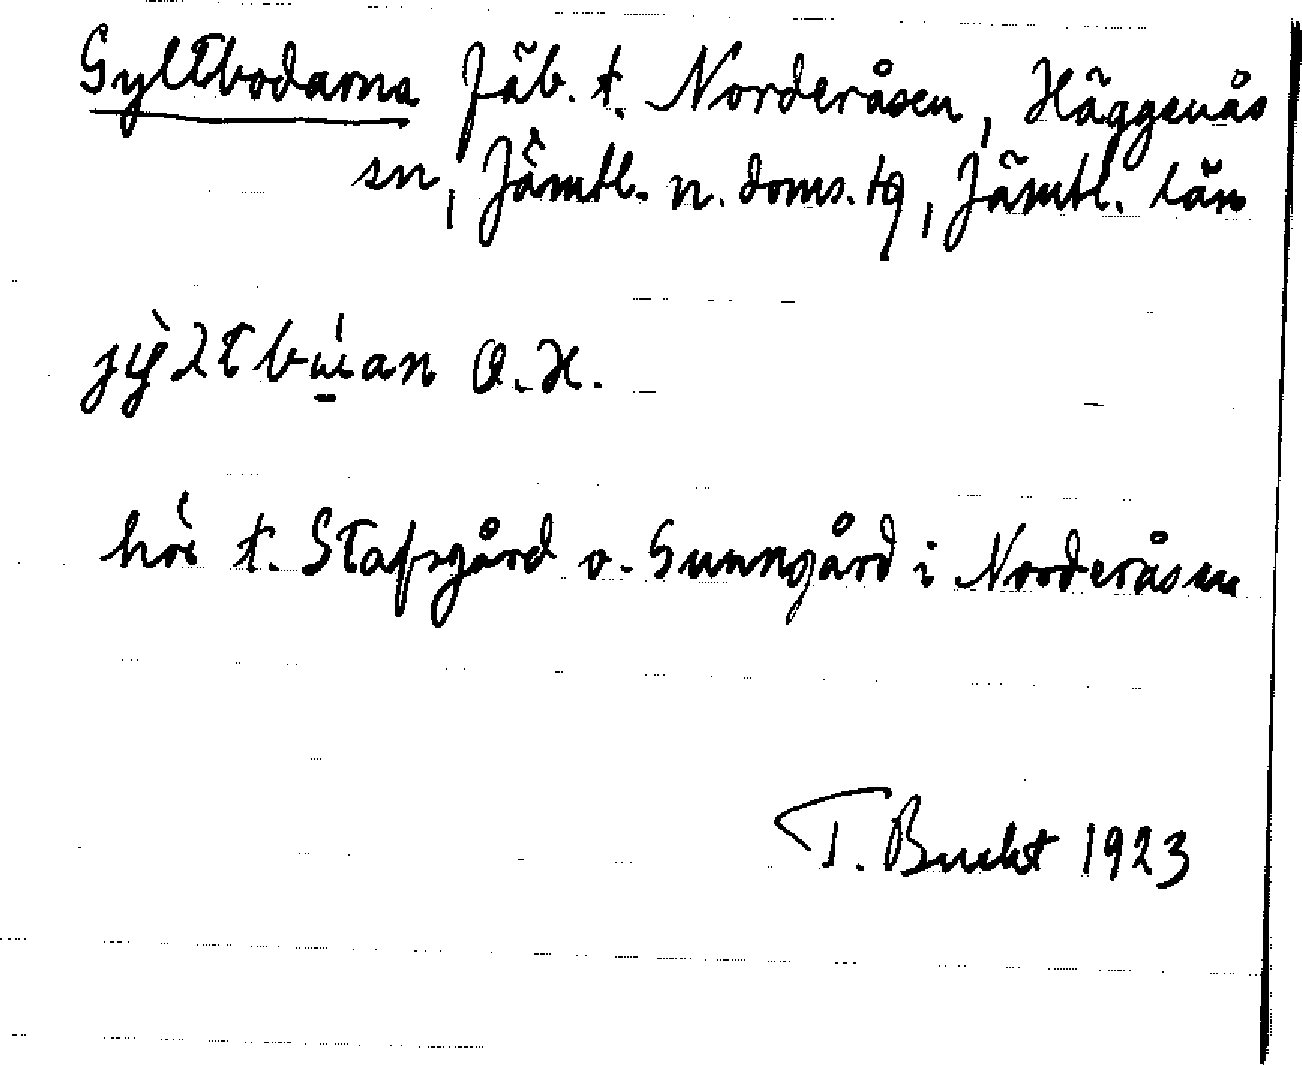 Gyltbodarna Fäb. t. Norderåsen, Häggenås
sn, Jämtl. n. doms. tg, Jämtl. län
O.H.
hör t. Stafsgård o. Sunngård i Norderåsen
T. Bucht 1923